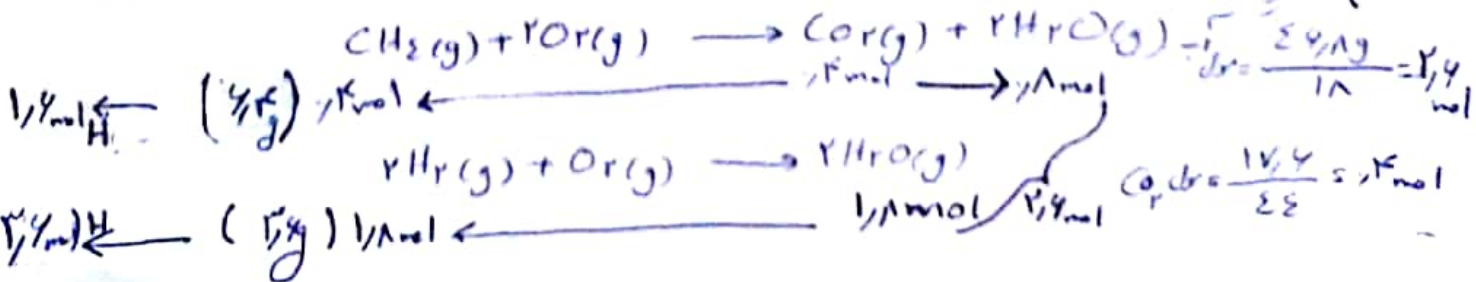 CH₄(g) + ۲O₂(g) ⟶ CO₂(g) + ۲H₂O(g) = \frac{۴۶,۸g}{۱۸} = ۲,۶ mol
۱,۶ mol H ← (۶,۴g) ,۴mol ← ,۴mol ⟶ ,۸mol
۲H₂(g) + O₂(g) ⟶ ۲H₂O(g) CO₂ = \frac{۱۷,۶}{۴۴} = ,۴mol
۳,۶ mol H ← (۳,۶g) ۱,۸mol ← ۱,۸mol ۲,۶mol